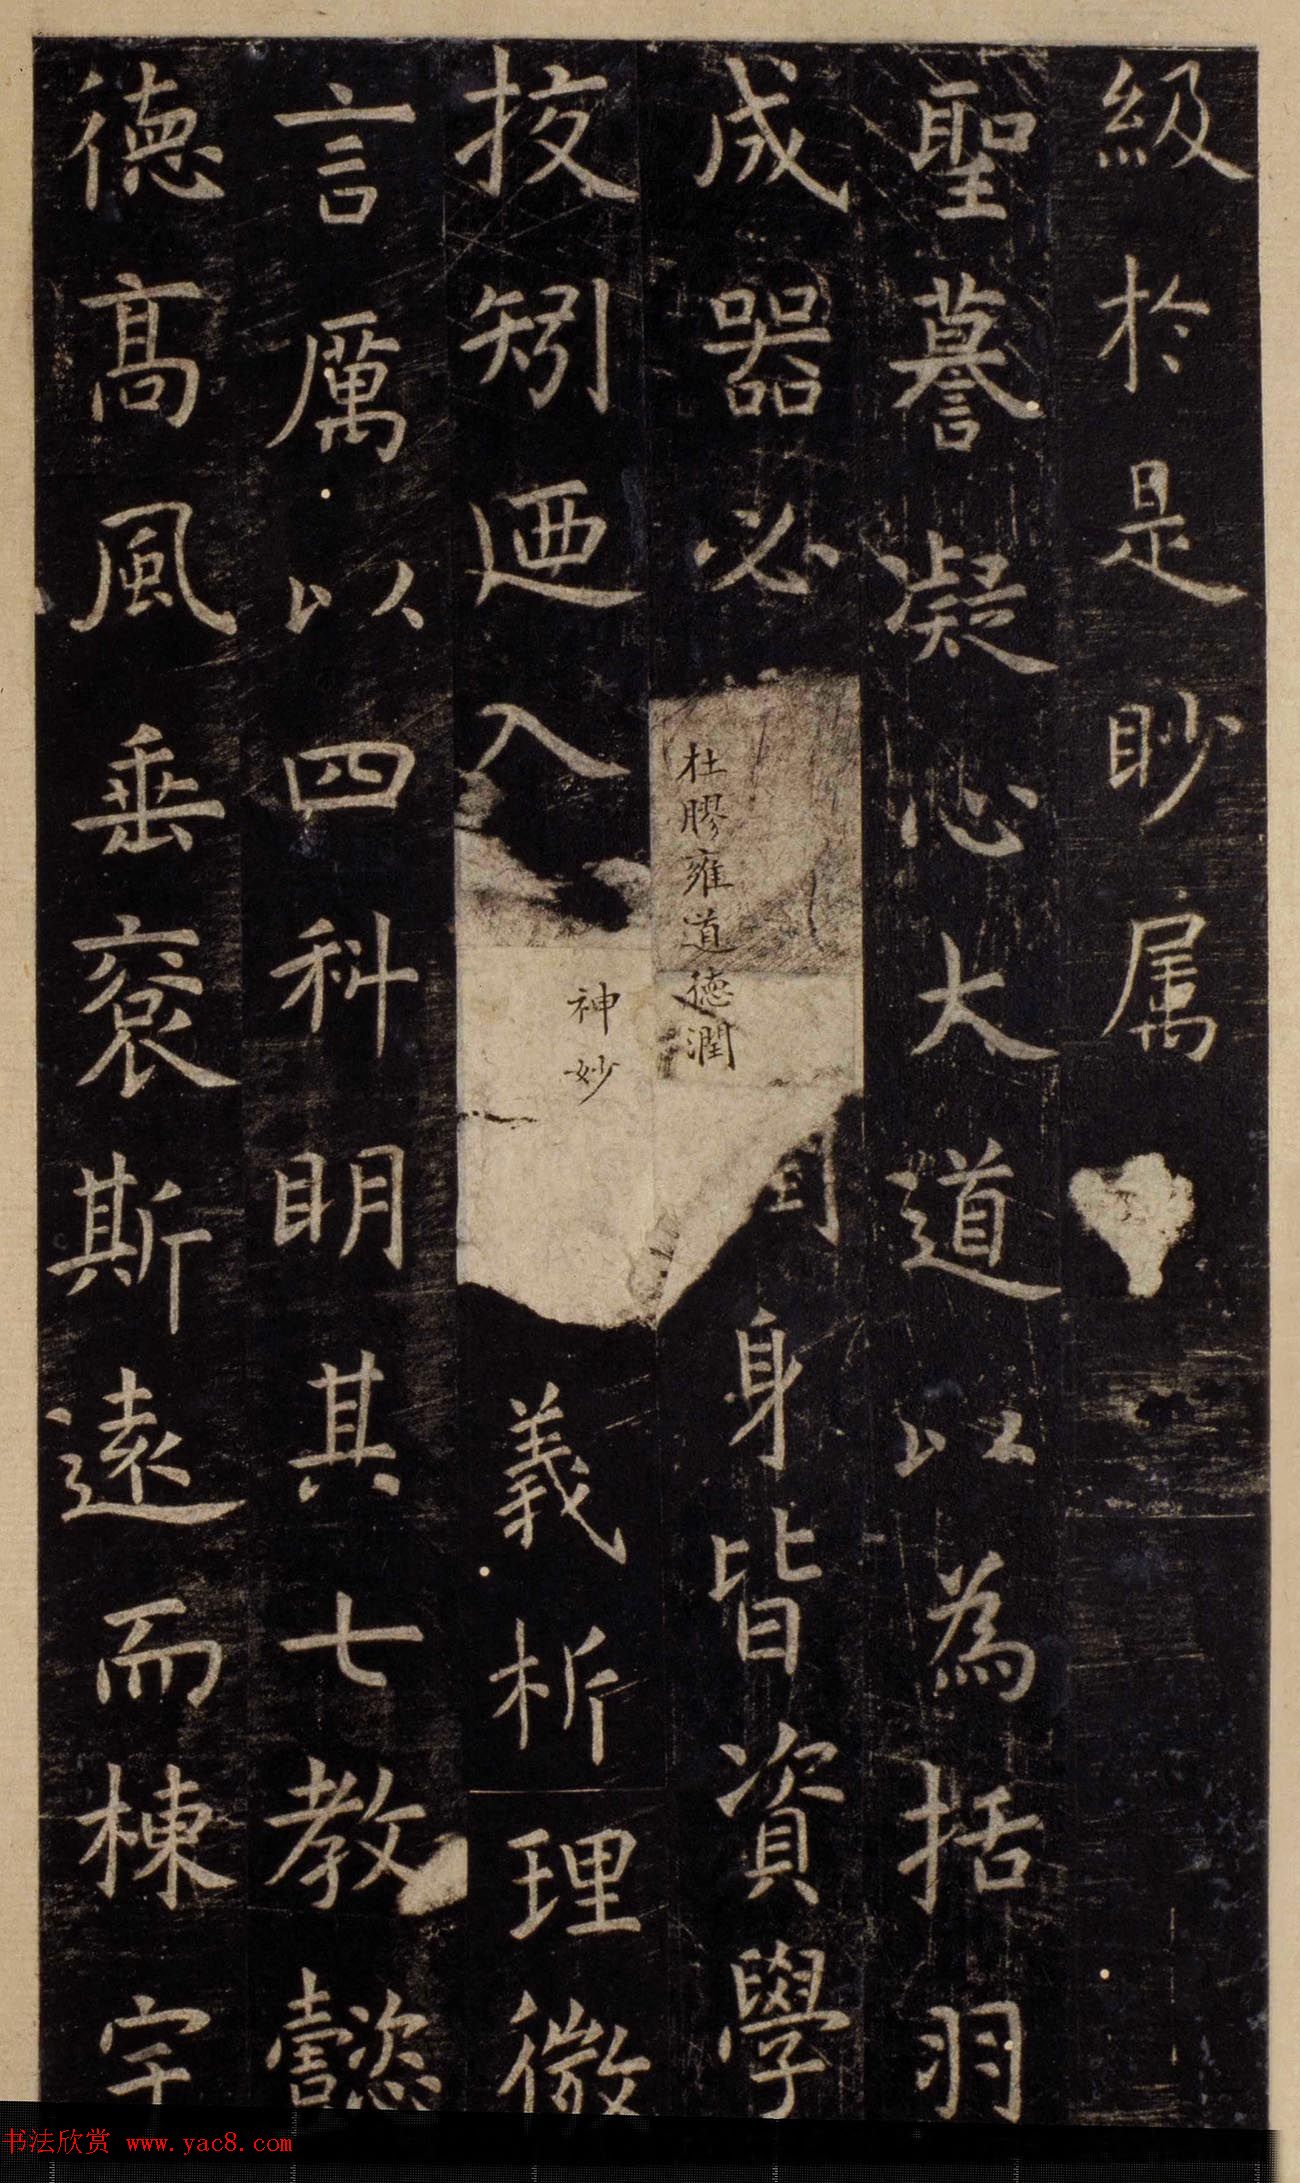 級於是眇属
聖謩凝心大道以為括羽
成器必
杜膠雍道德潤
身皆資學
技矧迺入
神妙
義析理微
言厲以四科明其七教懿
德髙風垂裦斯遠而棟宇
书法欣赏 www.yac8.com